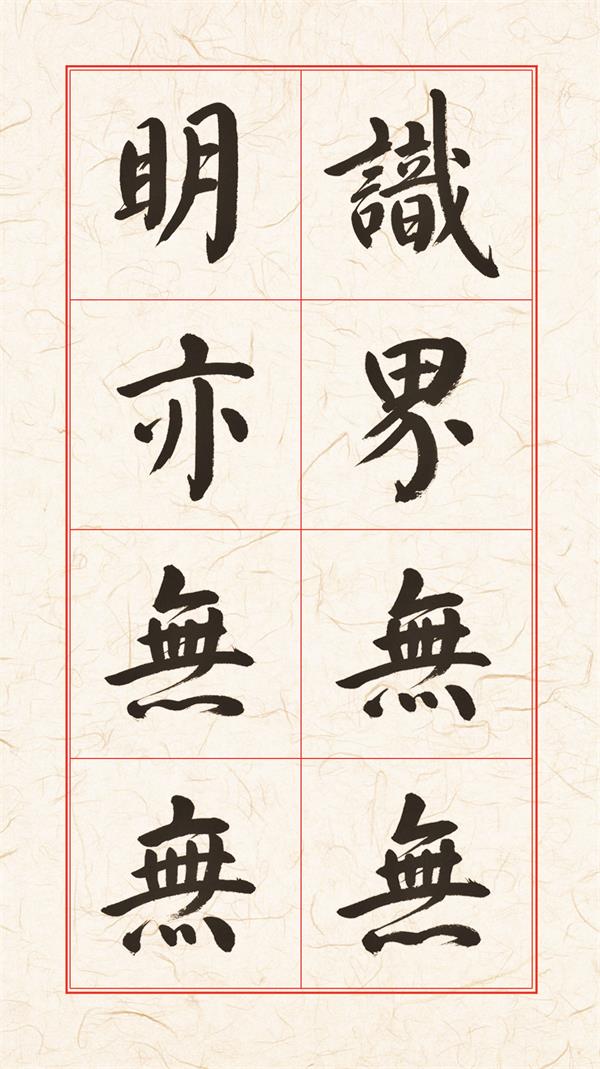 識界無無
明亦無無